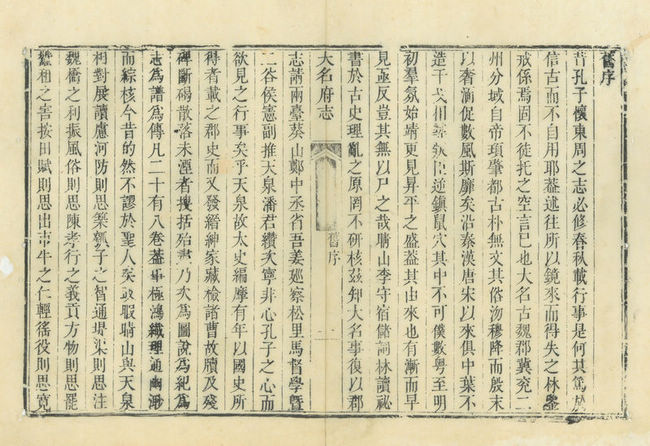 舊序
昔孔子懷東周之志必修春秋載行事是何其篤於
信古而不自用耶蓋述往所以鏡來而得失之林鑒
戒係焉固不徒托之空言已也大名古魏郡冀兖二
州分域自帝頊肇都古朴無文其俗沕穆降而殷末
以奢滴促數風斯靡矣沿秦漢唐宋以來俱中葉不
造干戈相尋 臣逆鎮鼠穴其中不可僂數粤至明
初羣氛始靖更見昇平之盛葢其由來也有漸而早
見亟反豈其無以尸之哉睛山李守宿儲詞林讀祕
書於古史理亂之原罔不研核兹知大名事復以郡
大名府志
舊序
志請兩臺葵山鄭中丞省吾姜廵察松里馬督學曁
二谷侯憲副推天泉潘君纘次寧非心孔子之心而
欲見之行事矣乎天泉故太史編摩有年以國史所
得者載之郡史而又發縉紳家藏檢諸曹故牘及殘
碑斷碣散落未湮者搜括殆盡乃次爲圖說爲紀爲
志爲譜爲傳凡二十有八卷葢 極鴻纎理通幽渺
而綜核今昔的然不謬於聖人矣 暇睛山與天泉
相對展讀慮河防則思築瓠子之智通堤渠則思注
魏衝之利振風俗則思陳孝行之義貢方物則思罷
蠶租之害按田賦則思出帀牛之仁輕徭役則思寛